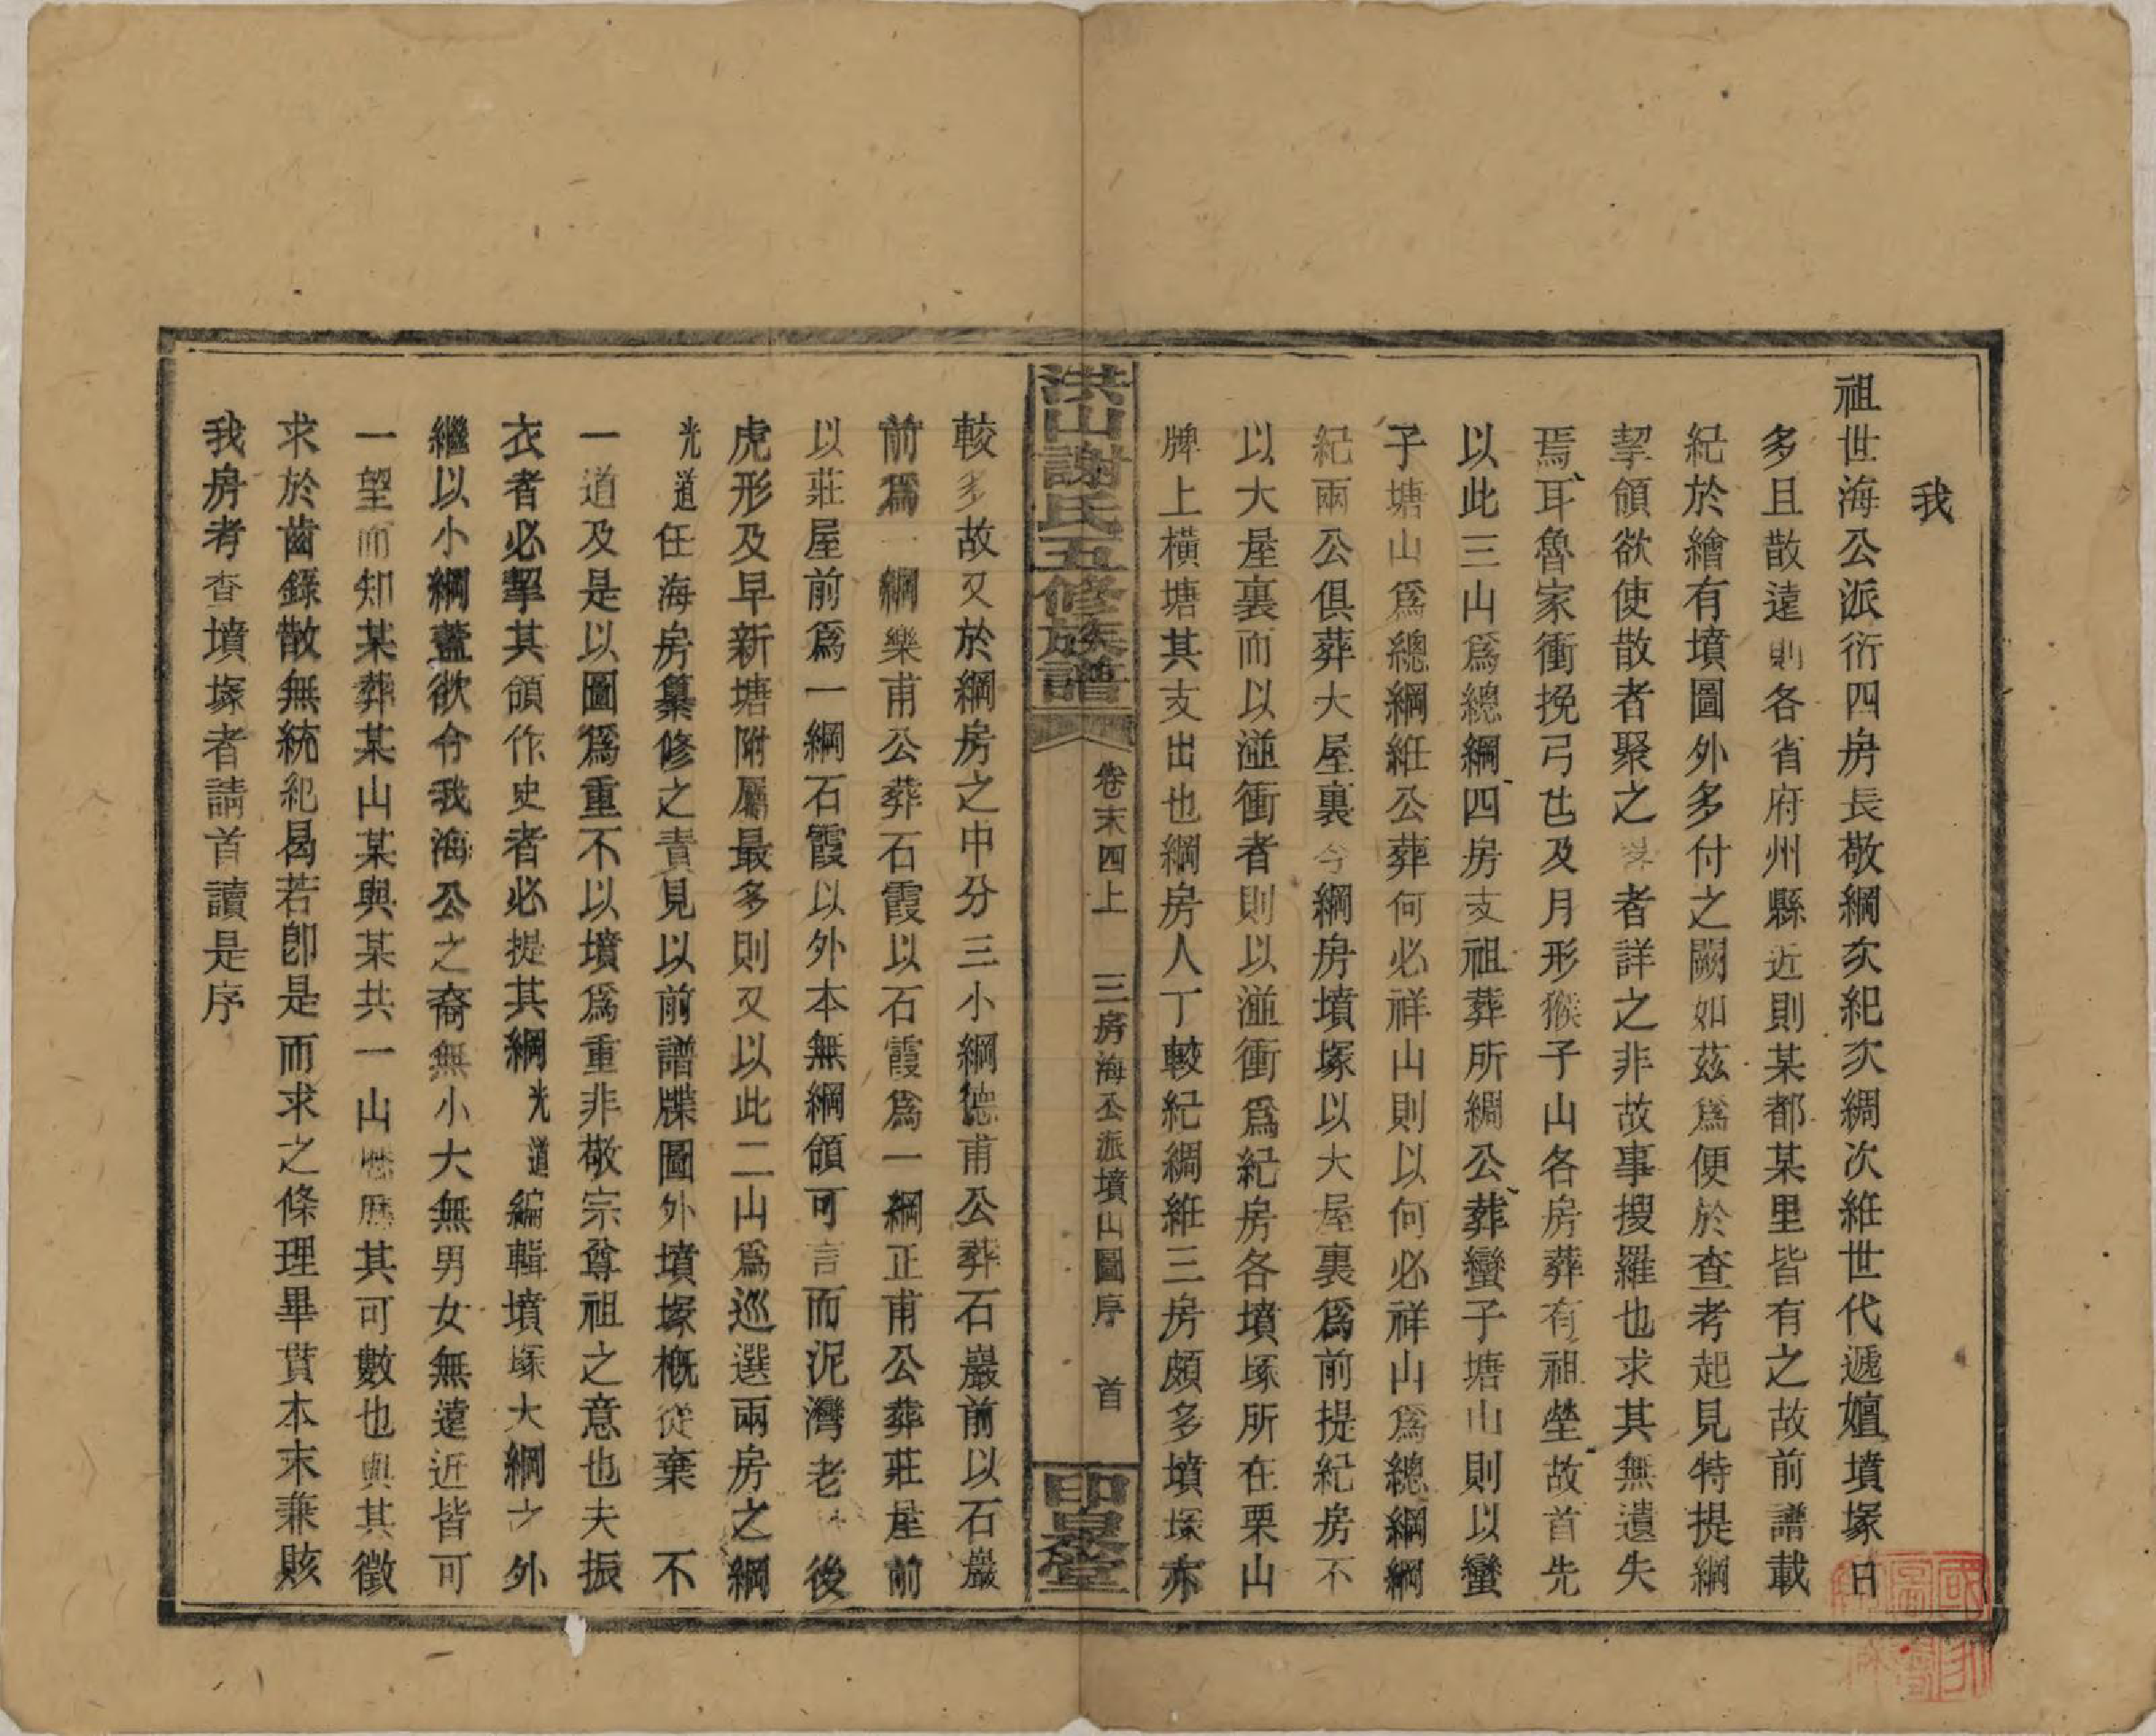 我
祖世海公派衍四房長敬綱次紀次綢次維世代遞嬗墳塚日
多且散遠則各省府州縣近則某都某里皆有之故前譜載
紀於繪有墳圖外多付之闕如茲爲便於查考起見特提綱
挈領欲使散者聚之畧者詳之非故事搜羅也求其無遺失
焉耳魯家衝挽弓芭及月形猴子山各房葬有祖塋故首先
以此三山爲總綱四房支祖葬所綢公葬蠻子塘山則以蠻
子塘山爲總綱維公葬何必祥山則以何必祥山爲總綱綱
紀兩公俱葬大屋裏今綱房墳塚以大屋裏爲前提紀房不
以大屋裏而以湴衝者則以湴衝爲紀房各墳塚所在栗山
牌上橫塘其支出也綱房人丁較紀綢維三房頗多墳塚亦
洪山謝氏五修族譜
卷末四上 三房海公派墳山圖序 首
印泉堂
較多故又於綱房之中分三小綱德甫公葬石巖前以石巖
前爲一綱樂甫公葬石霞以石霞爲一綱正甫公葬莊屋前
以莊屋前爲一綱石霞以外本無綱領可言而泥灣老 後
虎形及早新塘附屬最多則又以此二山爲巡選兩房之綱
光道任海房纂修之責見以前譜牒圖外墳塚概從棄 不
一道及是以圖爲重不以墳爲重非敬宗尊祖之意也夫振
衣者必挈其領作史者必提其綱光道編輯墳塚大綱之外
繼以小綱蓋欲令我海公之裔無小大無男女無遠近皆可
一望而知某葬某山某與某共一山歷歷其可數也與其徵
求於齒錄散無統紀曷若卽是而求之條理畢貫本末兼賅
我房考查墳塚者請首讀是序